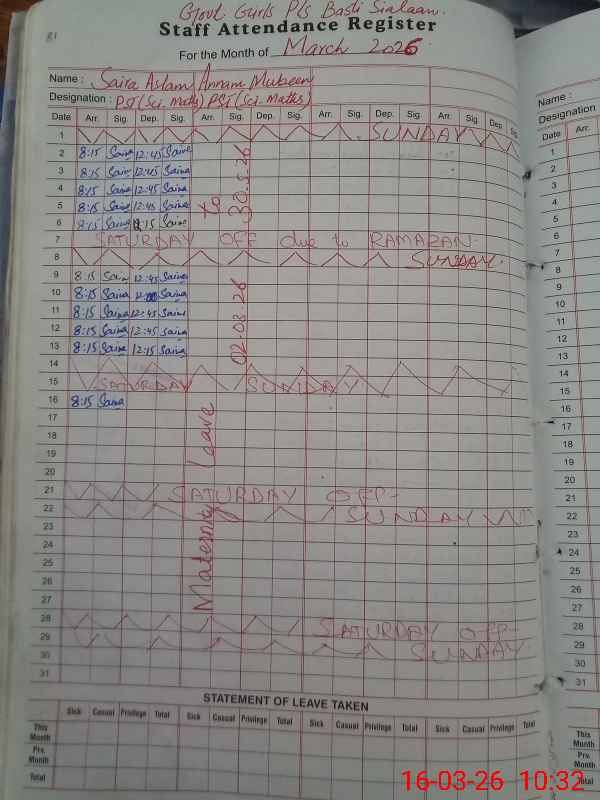 81
Govt. Girls P/s Basti Sialaan.
Staff Attendance Register
For the Month of March 2026
Name : Saira Aslam Annam Mubeen
Designation : PST (Sci. Math) PST (Sci. Maths)
Date Arr. Sig. Dep. Sig. Arr. Sig. Dep. Sig. Arr. Sig. Dep. Sig. Arr. Sig. Dep. Sig.
1 SUNDAY
2 8:15 Saira 12:45 Saira
3 8:15 Saira 12:45 Saira
4 8:15 Saira 12:45 Saira
5 8:15 Saira 12:45 Saira
6 8:15 Saira 12:15 Saira
7 SATURDAY OFF due to RAMAZAN.
8 SUNDAY.
9 8:15 Saira 12:45 Saira
10 8:15 Saira Saira
11 8:15 Saira 12:45 Saira
12 8:15 Saira 12:45 Saira
13 8:15 Saira 12:15 Saira
14
15 SATURDAY SUNDAY
16 8:15 Saira
17
18
19
20
21 SATURDAY OFF-
22 SUNDAY
23
24
25
26
27
28 SATURDAY OFF-
29 SUNDAY.
30
31
Maternity Leave 02-03-26 to
STATEMENT OF LEAVE TAKEN
Sick Casual Privilege Total Sick Casual Privilege Total Sick Casual Privilege Total Sick Casual Privilege Total
This Month
Prv. Month
Total
Name :
Designation
Date Arr.
1
2
3
4
5
6
7
8
9
10
11
12
13
14
15
16
17
18
19
20
21
22
23
24
25
26
27
28
29
30
31
This Month
Prv. Month
Total
16-03-26 10:32